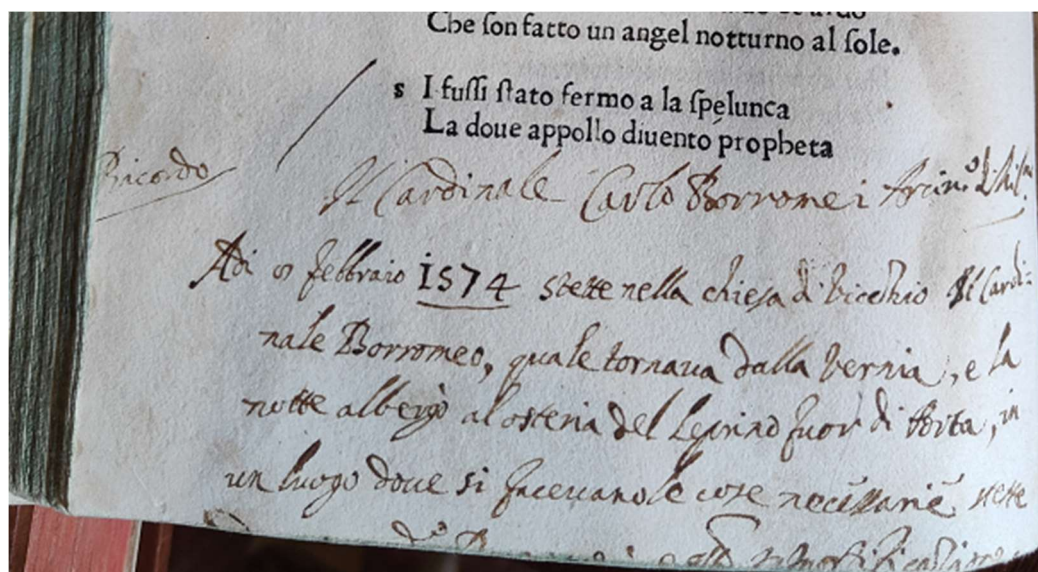 Che ſon fatto un angel notturno al ſole.
s I fuſſi ſtato fermo a la ſpelunca
La doue appollo diuentò propheta
Ricordo
Il Cardinale Carlo Borromei
Adi febbraio 1574 stette nella chiesa di Vicchio Il Cardi=
nale Borromeo, quale tornaua dalla Vernia, e la
notte albergò al osteria del Leprino fuor di Porta, in
un luogo doue si faceuano le cose necessarie stette